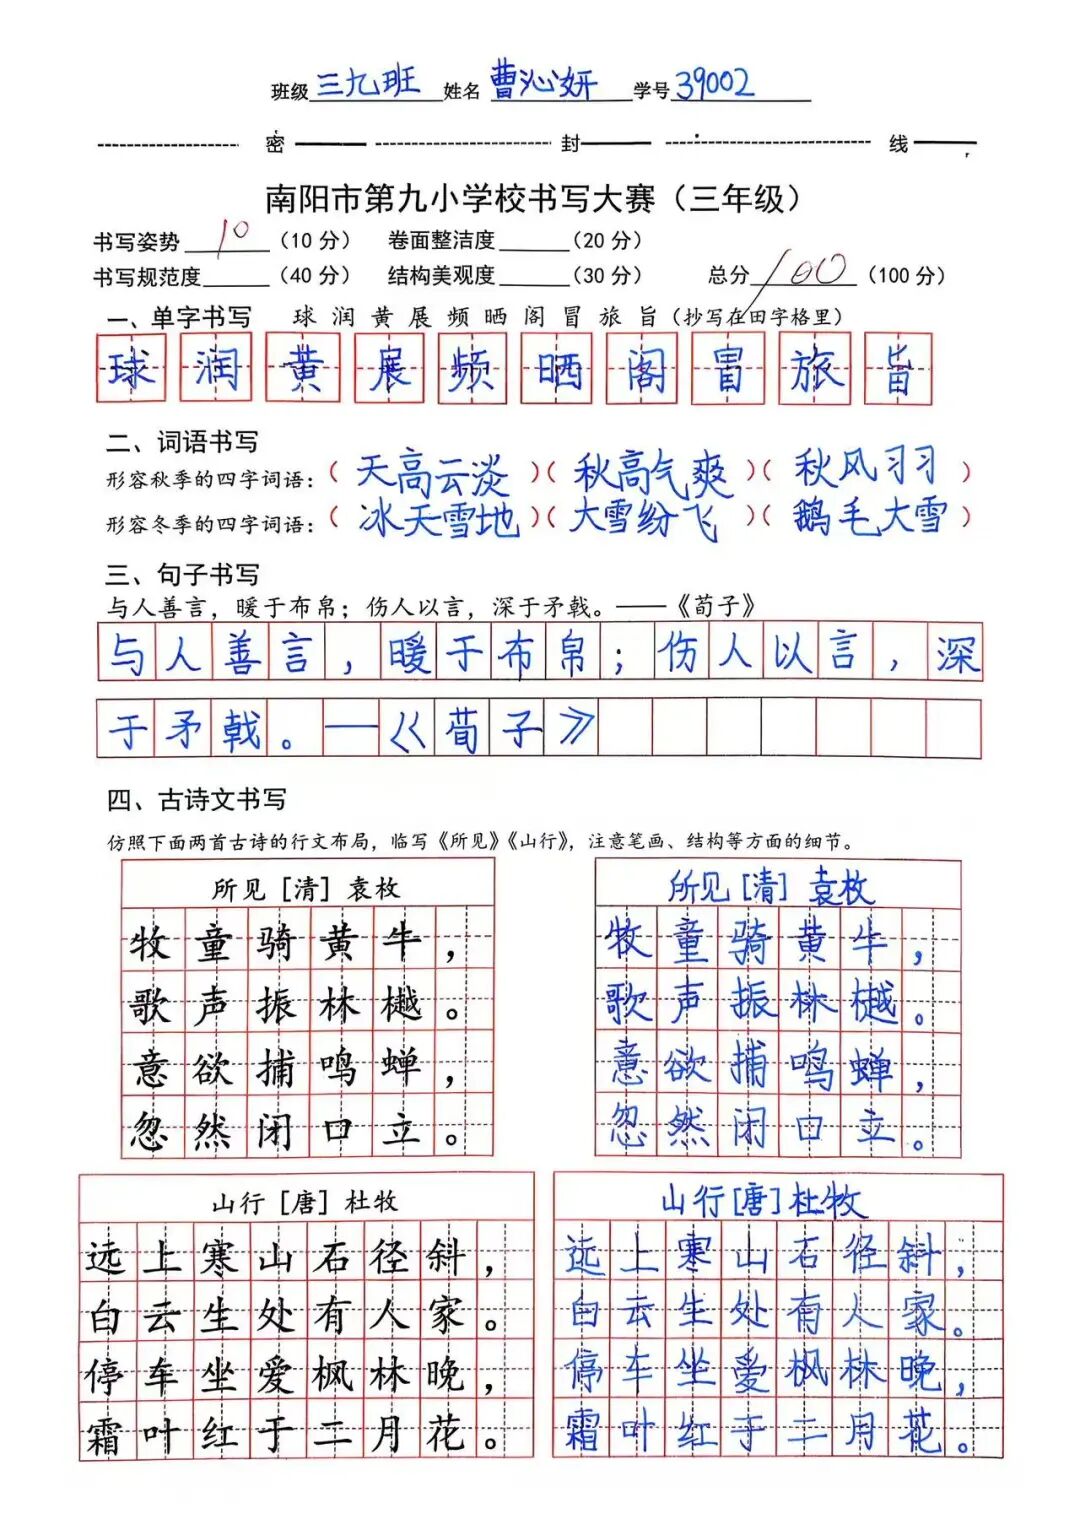 班级 三九班 姓名 曹沁妍 学号 39002
密 封 线
南阳市第九小学校书写大赛（三年级）
书写姿势 10 （10 分） 卷面整洁度 （20 分）
书写规范度 （40 分） 结构美观度 （30 分） 总分 100 （100 分）
一、单字书写 球 润 黄 展 频 晒 阁 冒 旅 旨（抄写在田字格里）
球 润 黄 展 频 晒 阁 冒 旅 旨
二、词语书写
形容秋季的四字词语：（天高云淡）（秋高气爽）（秋风习习）
形容冬季的四字词语：（冰天雪地）（大雪纷飞）（鹅毛大雪）
三、句子书写
与人善言，暖于布帛；伤人以言，深于矛戟。——《荀子》
与人善言，暖于布帛；伤人以言，深
于矛戟。—《荀子》
四、古诗文书写
仿照下面两首古诗的行文布局，临写《所见》《山行》，注意笔画、结构等方面的细节。
所见［清］袁枚
牧童骑黄牛，
歌声振林樾。
意欲捕鸣蝉，
忽然闭口立。
所见[清]袁枚
牧童骑黄牛，
歌声振林樾。
意欲捕鸣蝉，
忽然闭口立。
山行［唐］杜牧
远上寒山石径斜，
白云生处有人家。
停车坐爱枫林晚，
霜叶红于二月花。
山行[唐]杜牧
远上寒山石径斜，
白云生处有人家。
停车坐爱枫林晚，
霜叶红于二月花。